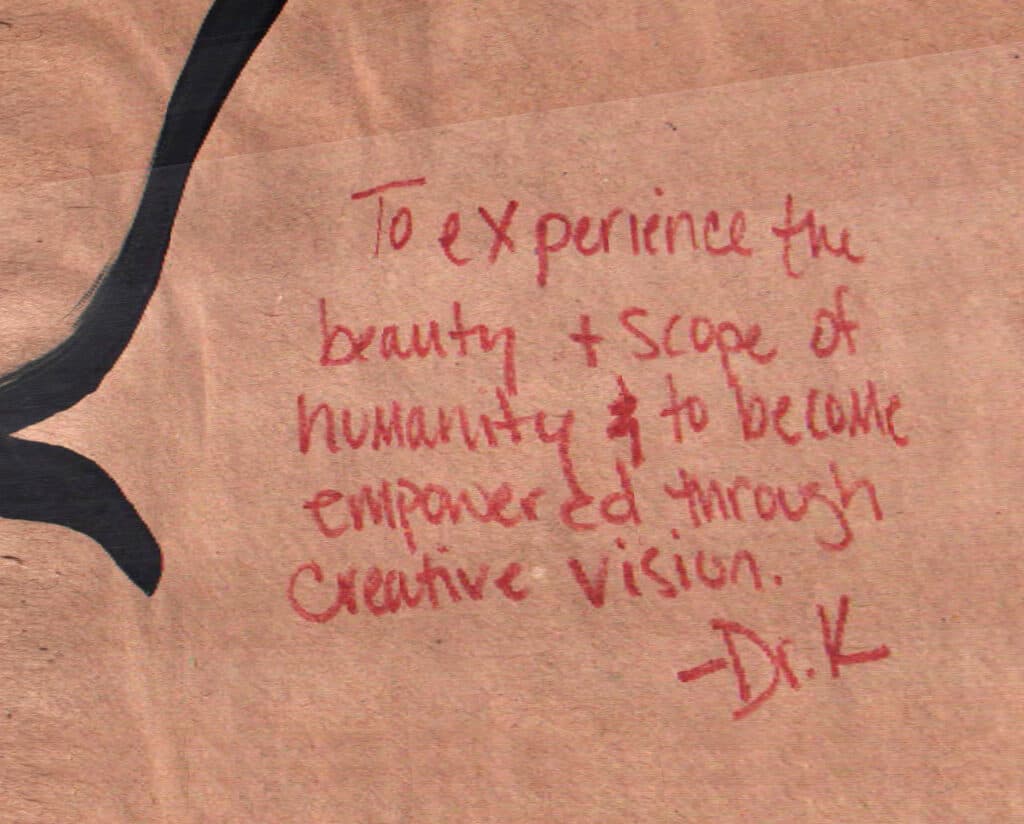 To experience the
beauty + scope of
humanity & to become
empowered through
creative vision.
-Dr. K